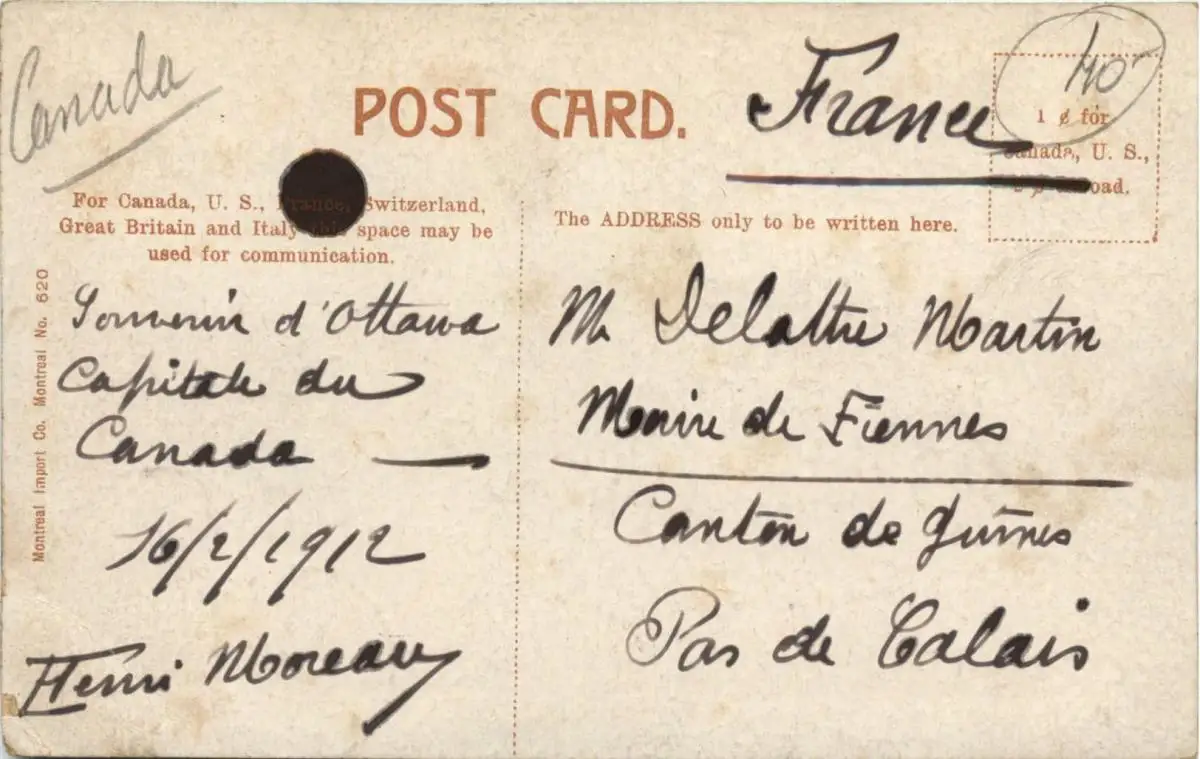 Canada
POST CARD.
France
40
1 ¢ for
Canada, U. S.,
For Canada, U. S., France, Switzerland,
Great Britain and Italy this space may be
used for communication.
The ADDRESS only to be written here.
Montreal Import Co. Montreal No. 620
Souvenir d'Ottawa
Capitale du
Canada —
16/2/1912
Henri Moreau
M. Delattre Martin
Maire de Fiennes
Canton de Guînes
Pas de Calais